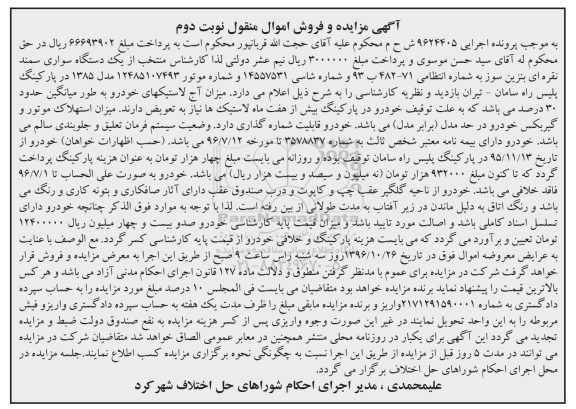 آگهی مزایده و فروش اموال منقول نوبت دوم
به موجب پرونده اجرایی ۹۶۲۴۴۰۵ ش ح م محکوم علیه آقای حجت الله قربانپور محکوم است به پرداخت مبلغ ۶۶۶۹۳۹۰۲ ریال در حق
محکوم له آقای سید حسن موسوی و پرداخت مبلغ ۳۰۰۰۰۰۰ ریال نیم عشر دولتی لذا کارشناس منتخب از یک دستگاه سواری سمند
نقره ای بنزین سوز به شماره انتظامی ۷۱-۴۸۲ ب ۹۳ و شماره شاسی ۱۴۵۵۷۵۳۱ و شماره موتور ۱۲۴۸۵۱۰۷۴۹۳ مدل ۱۳۸۵ در پارکینگ
پلیس راه سامان - تیران بازدید و نظریه کارشناسی را به شرح ذیل اعلام می دارد. میزان آج لاستیکهای خودرو به طور میانگین حدود
۳۰ درصد می باشد که به علت توقیف خودرو در پارکینگ بیش از هفت ماه لاستیک ها نیاز به تعویض دارند. میزان استهلاک موتور و
گیربکس خودرو در حد مدل (برابر مدل) می باشد. خودرو قابلیت شماره گذاری دارد. وضعیت سیستم فرمان تعلیق و جلوبندی سالم می
باشد. خودرو دارای بیمه نامه معتبر شخص ثالث به شماره ۳۵۷۸۸۳۷ تا مورخه ۹۶/۷/۱۲ می باشد. (حسب اظهارات خواهان) خودرو از
تاریخ ۹۵/۱۱/۱۳ در پارکینگ پلیس راه سامان توقیف بوده و روزانه می بایست مبلغ چهار هزار تومان به عنوان هزینه پارکینگ پرداخت
گردد که تا کنون مبلغ ۹۳۲۰۰۰ هزار تومان (نه میلیون و سیصد و بیست هزار ریال) می باشد. خودرو به صورت علی الحساب تا ۹۶/۷/۱
فاقد خلافی می باشد. خودرو از ناحیه گلگیر عقب چپ و کاپوت و درب صندوق عقب دارای آثار صافکاری و بتونه کاری و رنگ می
باشد و رنگ اتاق به دلیل ماندن در زیر آفتاب به مدت طولانی از بین رفته است. لذا با توجه به موارد فوق الذکر چنانچه خودرو دارای
تسلسل اسناد کاملی باشد و اصالت مورد تایید باشد و میزان قیمت پایه کارشناسی خودرو صدو بیست و چهار میلیون ریال ۱۲۴۰۰۰۰۰
تومان تعیین و برآورد می گردد که می بایست هزینه پارکینگ و خلافی خودرو از قیمت پایه کارشناسی کسر گردد. مع الوصف با عنایت
به عرایض معروضه اموال فوق در تاریخ ۱۳۹۶/۱۰/۲۶ روز سه شنبه راس ساعت ۹ صبح از طریق این اجرا به معرض مزایده و فروش قرار
خواهد گرفت شرکت در مزایده برای عموم با مدنظر گرفتن منطوق و دلالت ماده ۱۲۷ قانون اجرای احکام مدنی آزاد می باشد و هر کس
بالاترین قیمت را پیشنهاد نماید برنده مزایده خواهد بود متقاضیان می بایست فی المجلس ۱۰ درصد مبلغ مورد مزایده را به حساب سپرده
دادگستری به شماره ۲۱۷۱۲۹۱۵۹۰۰۰۱ واریز و برنده مزایده مابقی مبلغ را ظرف مدت یک هفته به حساب سپرده دادگستری واریز و فیش
مربوطه را به این واحد تحویل نمایند در غیر این صورت وجوه واریزی پس از کسر هزینه مزایده به نفع صندوق دولت ضبط و مزایده
تجدید می گردد این آگهی برای یکبار در روزنامه محلی منتشر همچنین در معابر عمومی الصاق خواهد شد متقاضیان شرکت در مزایده
می توانند در مدت ۵ روز قبل از مزایده از طریق این اجرا نسبت به چگونگی نحوه برگزاری مزایده کسب اطلاع نمایند.جلسه مزایده در
محل اجرای احکام شوراهای حل اختلاف برگزار می گردد.
علیمحمدی ، مدیر اجرای احکام شوراهای حل اختلاف شهرکرد